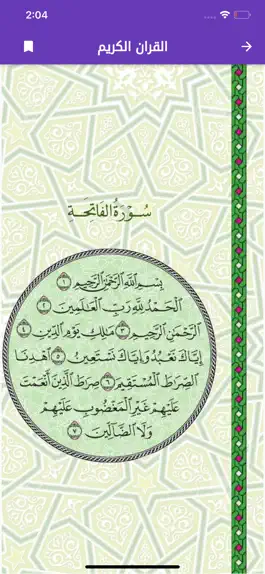 2:04
القران الكريم
سُورَةُ الْفَاتِحَةِ
بِسْمِ اللَّهِ الرَّحْمَٰنِ الرَّحِيمِ ١
الْحَمْدُ لِلَّهِ رَبِّ الْعَالَمِينَ ٢
الرَّحْمَٰنِ الرَّحِيمِ ٣ مَالِكِ يَوْمِ الدِّينِ ٤
إِيَّاكَ نَعْبُدُ وَإِيَّاكَ نَسْتَعِينُ ٥ اهْدِنَا
الصِّرَاطَ الْمُسْتَقِيمَ ٦ صِرَاطَ الَّذِينَ أَنْعَمْتَ
عَلَيْهِمْ غَيْرِ الْمَغْضُوبِ عَلَيْهِمْ
وَلَا الضَّالِّينَ ٧